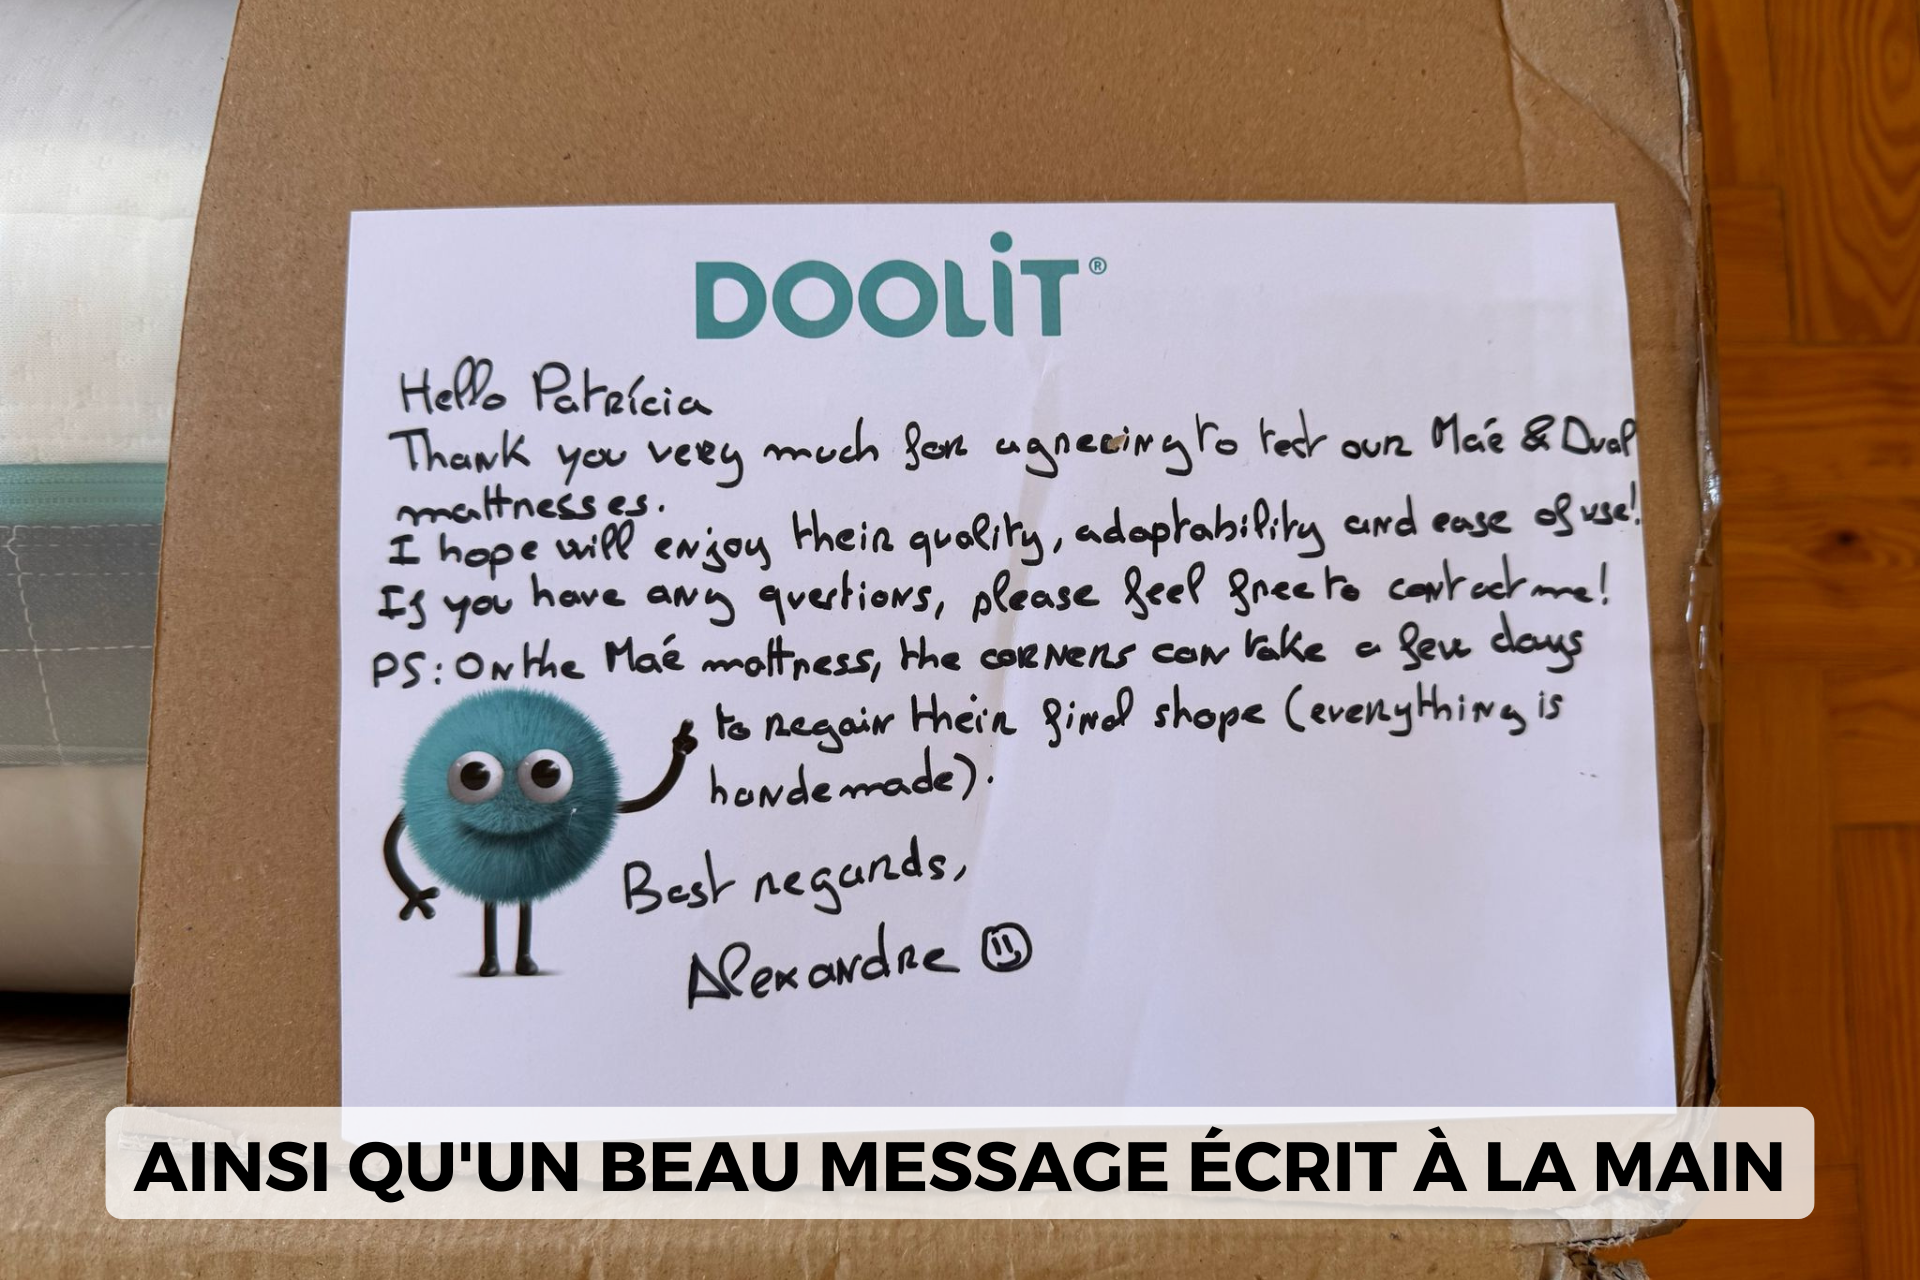 DOOLiT®
Hello Patrícia
Thank you very much for agreeing to test our Maé & Dual
mattresses.
I hope will enjoy their quality, adaptability and ease of use!
If you have any questions, please feel free to contact me!
PS: On the Maé mattress, the corners can take a few days
to regain their final shape (everything is
handemade).
Best regards,
Alexandre
AINSI QU'UN BEAU MESSAGE ÉCRIT À LA MAIN